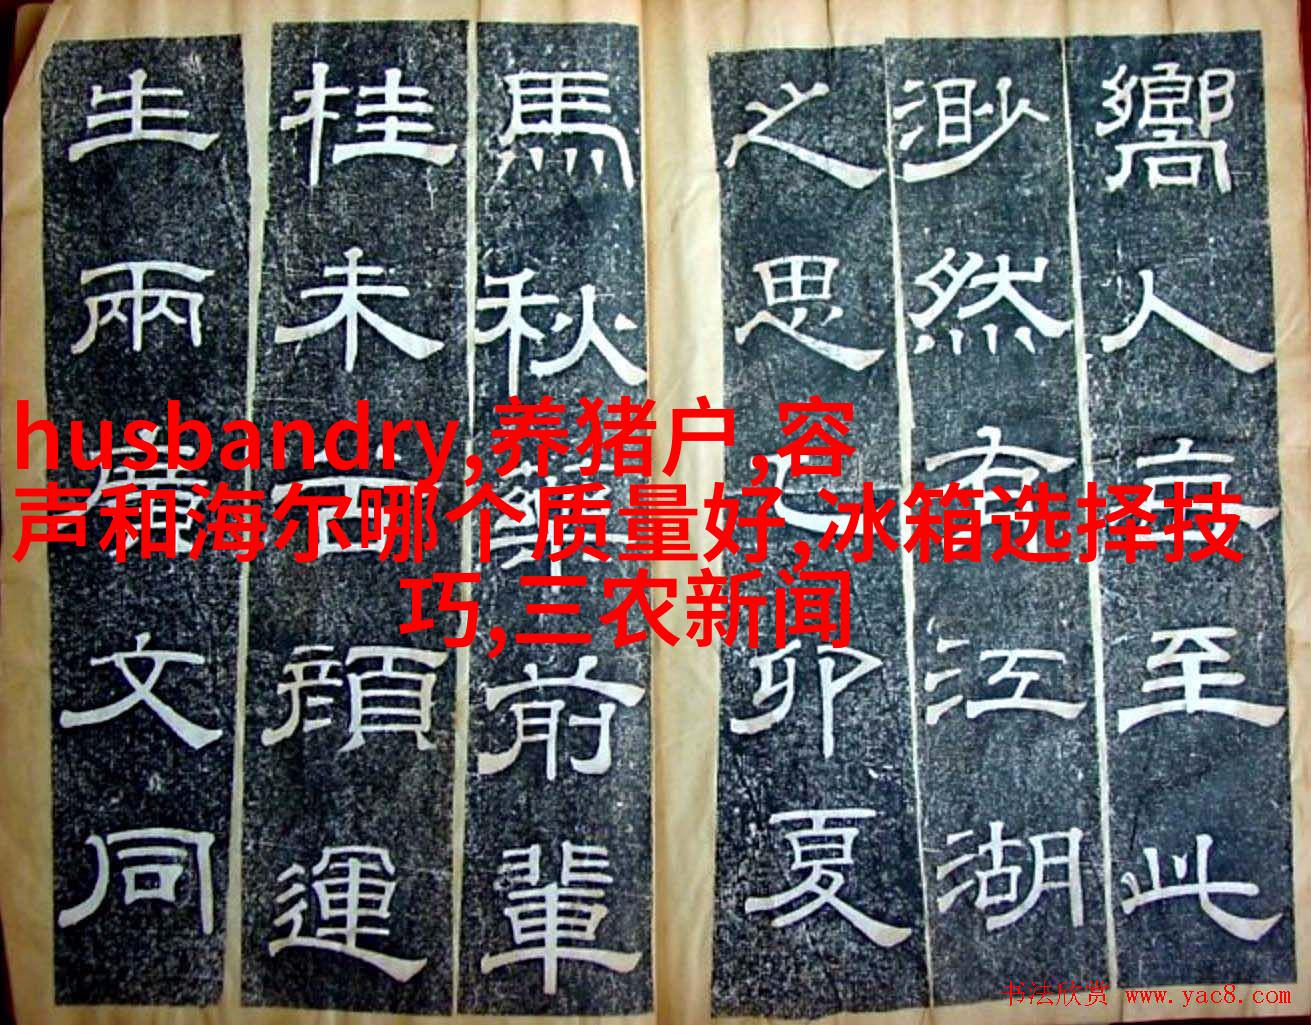 husbandry,养猪户,容
声和海尔哪个质量好,冰箱选择技
巧,三农新闻
嚮人立至此
渺然有江湖
之思乙卯夏
馬秋藥前輩
桂未顏運
生兩廣文同
书法欣赏 www.yac8.com